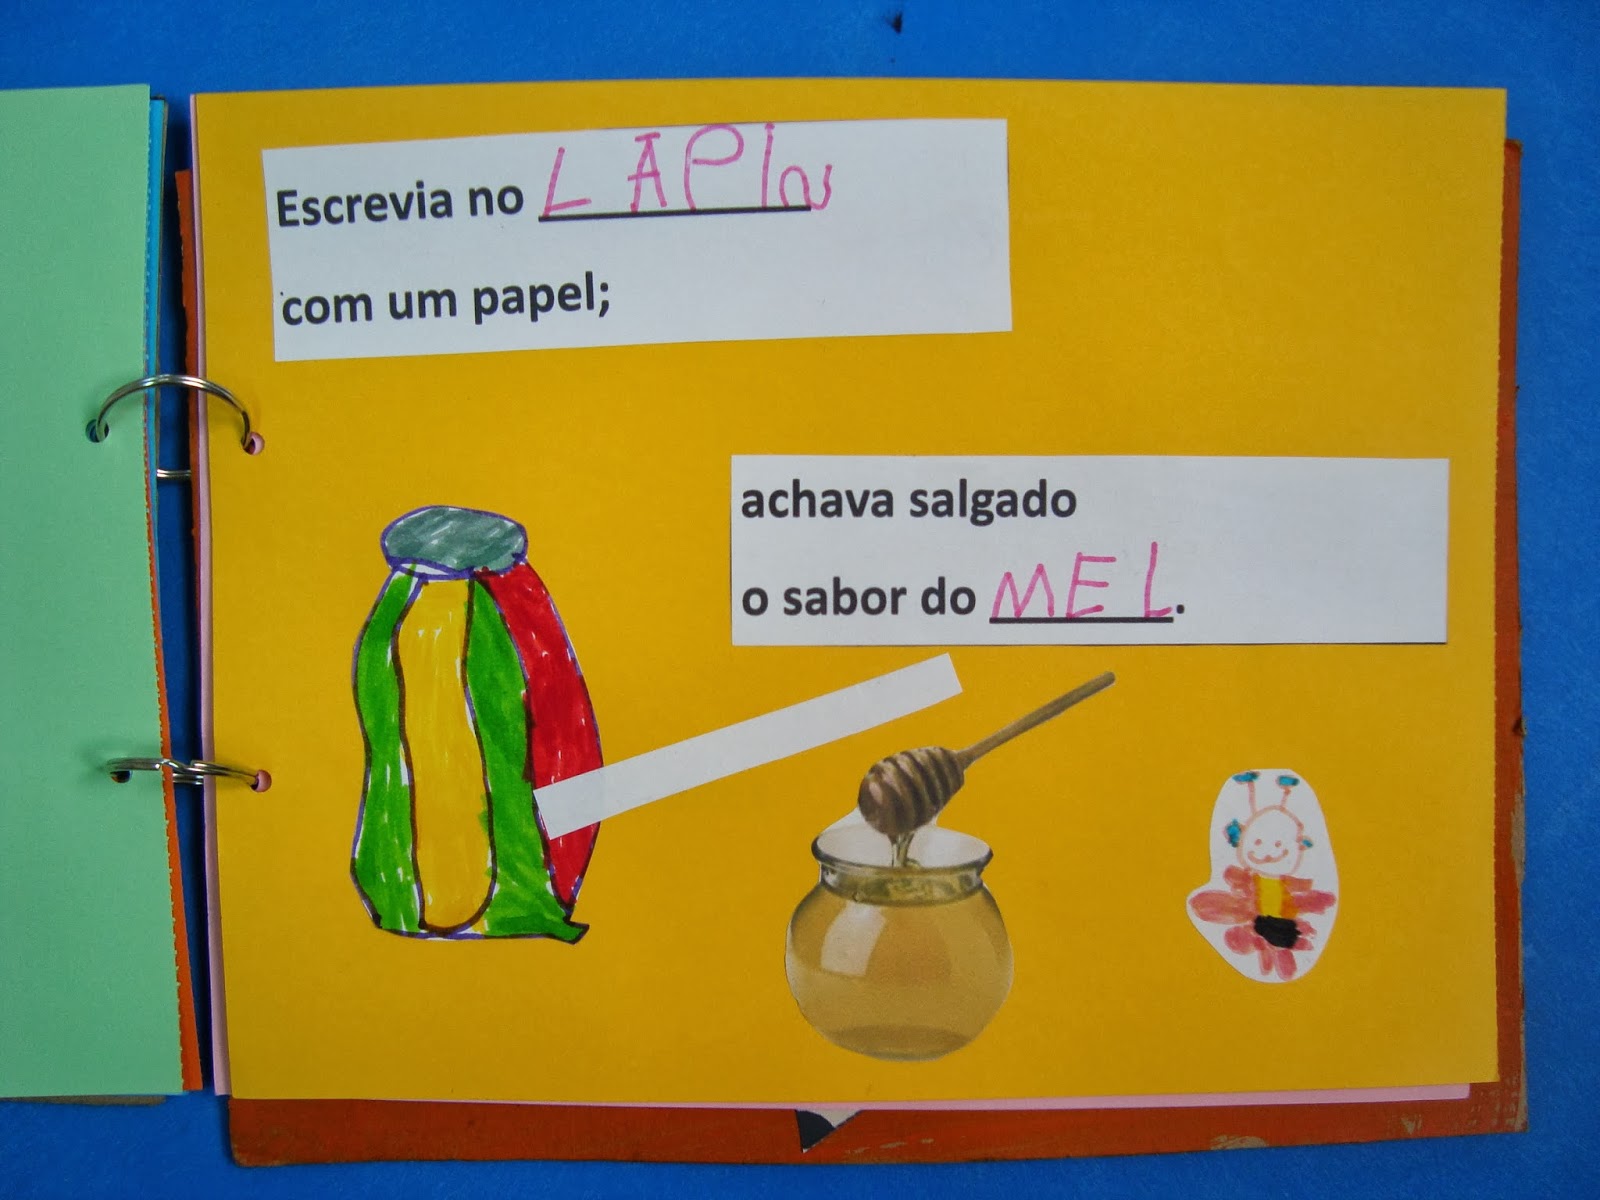 Escrevia no LAPIS
com um papel;
achava salgado
o sabor do MEL.